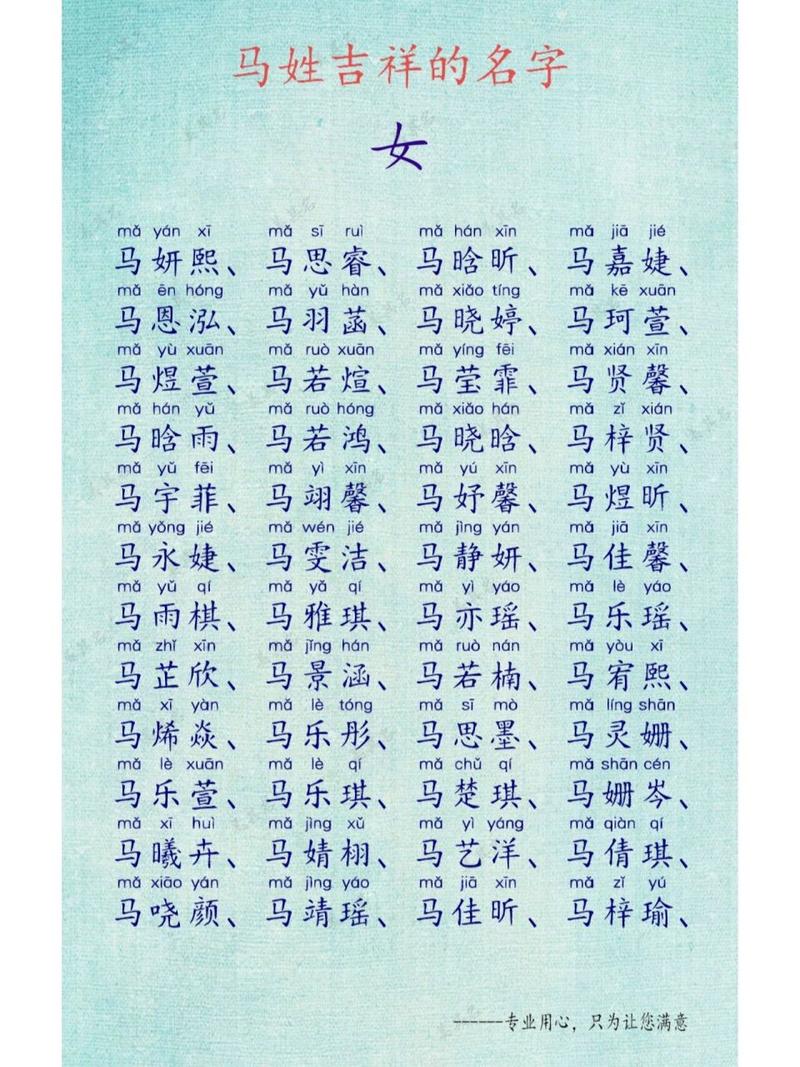 马姓吉祥的名字
女
mǎ yán xī mǎ sī ruì mǎ hán xīn mǎ jiā jié
马妍熙、马思睿、马晗昕、马嘉婕、
mǎ ēn hóng mǎ yǔ hàn mǎ xiǎo tíng mǎ kē xuān
马恩泓、马羽菡、马晓婷、马珂萱、
mǎ yù xuān mǎ ruò xuān mǎ yíng fēi mǎ xián xīn
马煜萱、马若煊、马莹霏、马贤馨、
mǎ hán yǔ mǎ ruò hóng mǎ xiǎo hán mǎ zǐ xián
马晗雨、马若鸿、马晓晗、马梓贤、
mǎ yǔ fēi mǎ yì xīn mǎ yú xīn mǎ yù xīn
马宇菲、马翊馨、马妤馨、马煜昕、
mǎ yǒng jié mǎ wén jié mǎ jìng yán mǎ jiā xīn
马永婕、马雯洁、马静妍、马佳馨、
mǎ yǔ qí mǎ yǎ qí mǎ yì yáo mǎ lè yáo
马雨棋、马雅琪、马亦瑶、马乐瑶、
mǎ zhǐ xīn mǎ jǐng hán mǎ ruò nán mǎ yòu xī
马芷欣、马景涵、马若楠、马宥熙、
mǎ xī yàn mǎ lè tóng mǎ sī mò mǎ líng shān
马烯焱、马乐彤、马思墨、马灵姗、
mǎ lè xuān mǎ lè qí mǎ chǔ qí mǎ shān cén
马乐萱、马乐琪、马楚琪、马姗岑、
mǎ xī huì mǎ jìng xǔ mǎ yì yáng mǎ qiàn qí
马曦卉、马婧栩、马艺洋、马倩琪、
mǎ xiāo yán mǎ jìng yáo mǎ jiā xīn mǎ zǐ yú
马哓颜、马靖瑶、马佳昕、马梓瑜、
------专业用心，只为让您满意